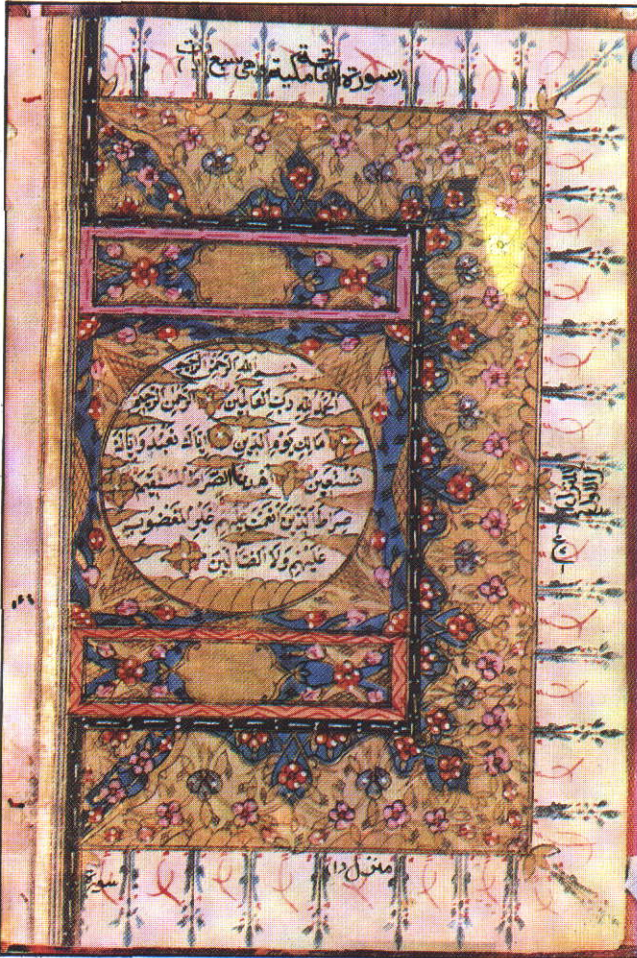 سورة الفاتحة مكية وهي سبع
بسم الله الرحمن الرحيم
الحمد لله رب العالمين الرحمن الرحيم
مالك يوم الدين إياك نعبد وإياك
نستعين اهدنا الصراط المستقيم
صراط الذين أنعمت عليهم غير المغضوب
عليهم ولا الضالين
المنزل
الاول
منزل